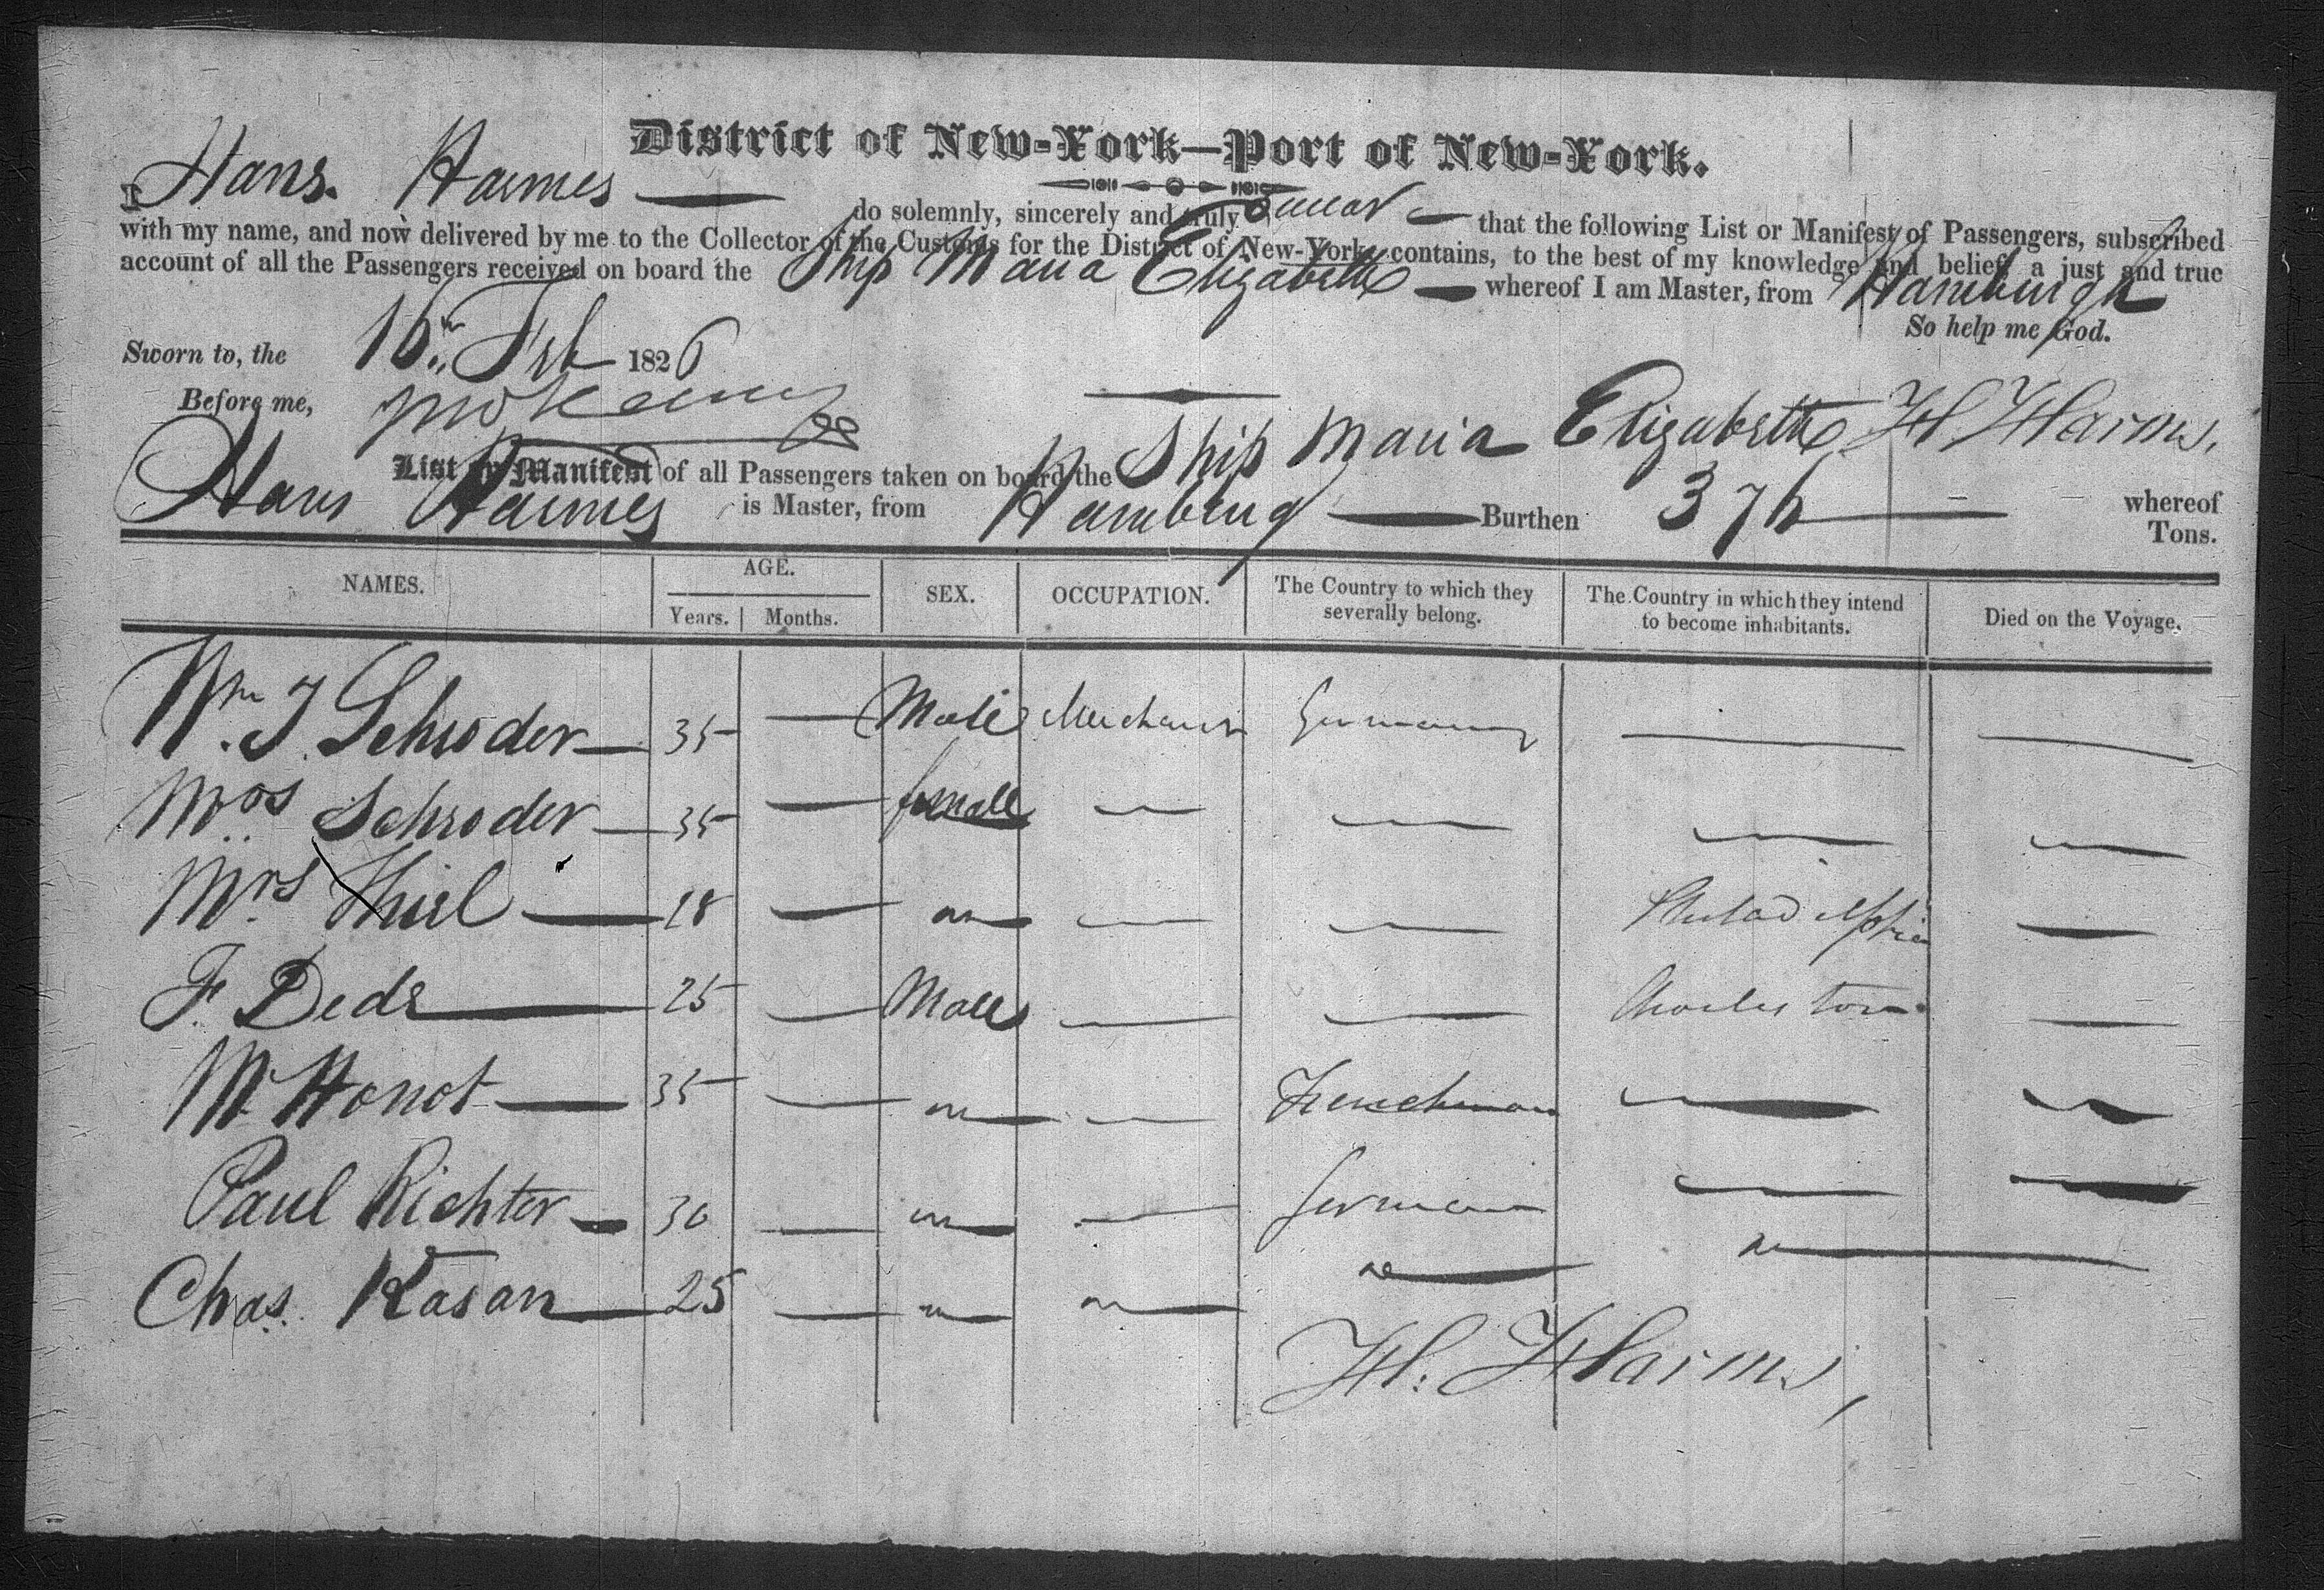 District of New-York—Port of New-York.
I Hans. Harmes do solemnly, sincerely and truly Swear that the following List or Manifest of Passengers, subscribed
with my name, and now delivered by me to the Collector of the Customs for the District of New-York, contains, to the best of my knowledge and belief, a just and true
account of all the Passengers received on board the Ship Maria Elizabeth whereof I am Master, from Hamburgh
So help me God.
Sworn to, the 16th Feb 1826
Before me,
H. Harms,
List or Manifest of all Passengers taken on board the Ship Maria Elizabeth whereof
Hans Harmes is Master, from Hamburg Burthen 376 Tons.
NAMES. AGE. SEX. OCCUPATION. The Country to which they severally belong. The Country in which they intend to become inhabitants. Died on the Voyage.
Years. Months.
Wm. J. Schroder 35 — Male Merchant Germany — —
Mrs Schroder 35 — female — — — —
Mrs Thiel 18 — — — — Philadelphia —
F. Dede 25 — Male — — Charleston —
Mr Honot 35 — — — Frenchman — —
Paul Richter 30 — — — German — —
Chas. Kasan 25 — — — — —
H. Harms,